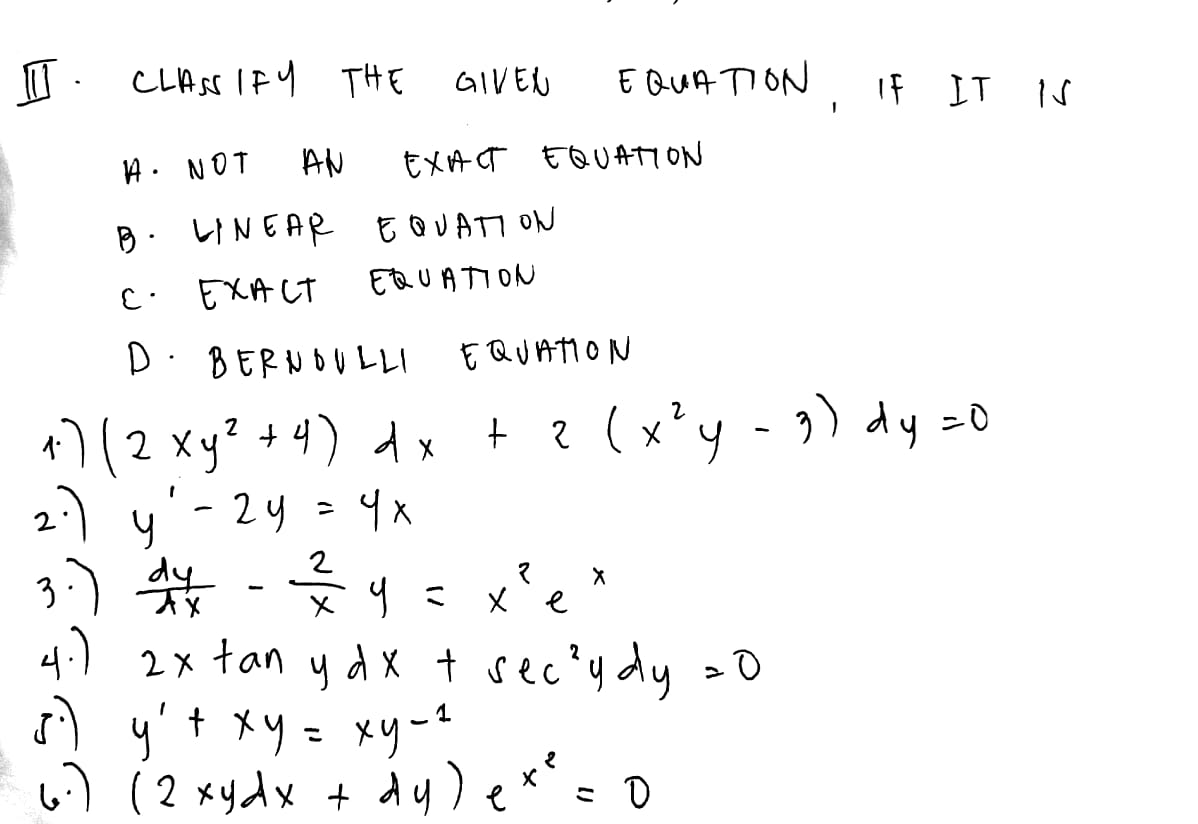 III. CLASSIFY THE GIVEN EQUATION, IF IT IS
A. NOT AN EXACT EQUATION
B. LINEAR EQUATION
C. EXACT EQUATION
D. BERNOULLI EQUATION
1.) (2xy² + 4) dx + 2 (x²y - 3) dy = 0
2.) y' - 2y = 4x
3.) dy/dx - 2/x y = x²e^x
4.) 2x tan y dx + sec²y dy = 0
5.) y' + xy = xy^-1
6.) (2xydx + dy) e^x² = 0